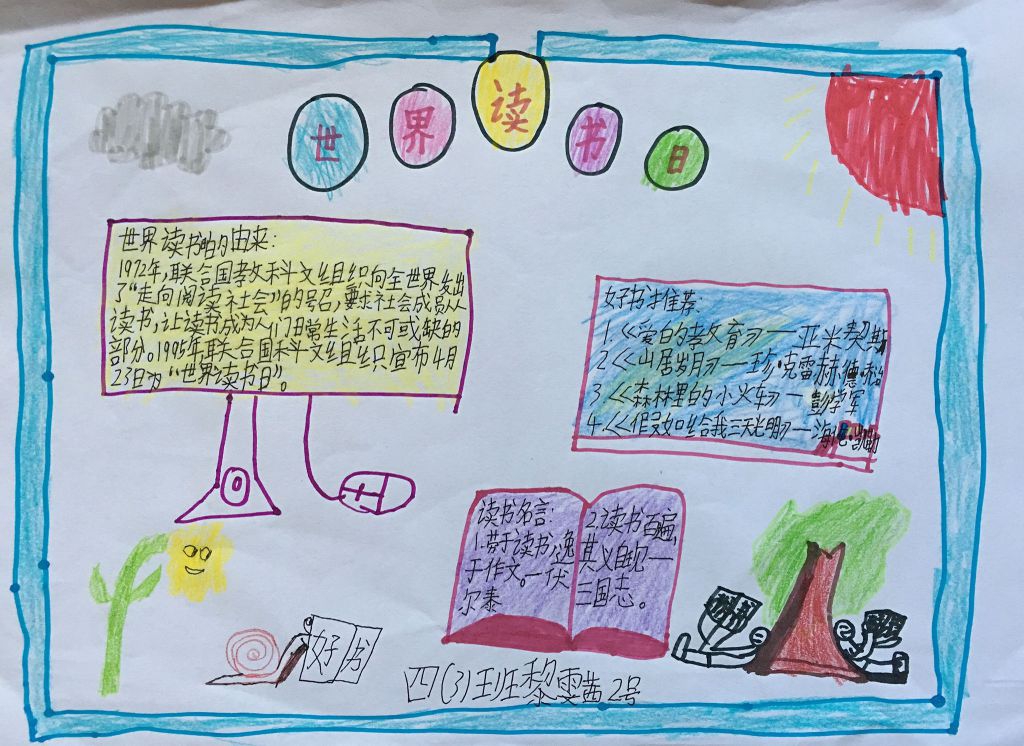 世界读书日
世界读书日的由来:
1972年,联合国教科文组织向全世界发出
了“走向阅读社会”的号召,要求社会成员人人
读书,让读书成为人们日常生活不可或缺的
部分。1995年联合国科文组织宣布4月
23日为“世界读书日”。
好书推荐:
1.《爱的教育》一亚米契斯
2《山居岁月》一珍·克雷赫德·乔治
3《森林里的小火车》一彭学军
4.《假如给我三天光明》一海伦·凯勒
读书名言:
1.劳于读书,逸
于作文。一伏
尔泰
2.读书百遍,
其义自现一
三国志。
好书
四(3)班黎雯茜2号